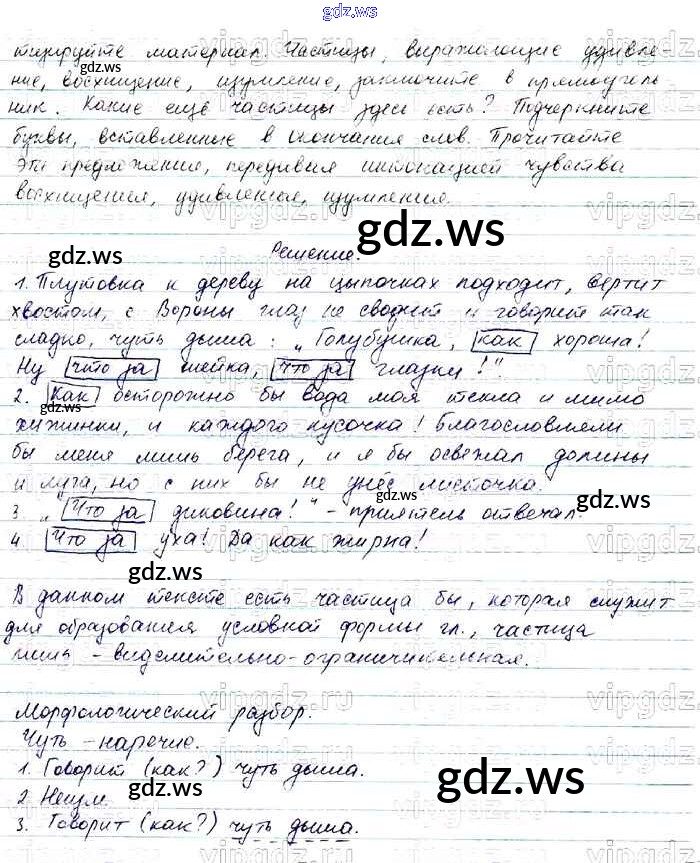 gdz.ws
тизируйте материал. Частицы, выражающие удивле-
ние, восхищение, изумление, заключите в прямоуголь-
ник. Какие ещё частицы здесь есть? Подчеркните
буквы, вставленные в окончания слов. Прочитайте
эти предложения, передавая интонацией чувства
восхищения, удивления, изумления.
Решение.
1. Плутовка к дереву на цыпочках подходит, вертит
хвостом, с Вороны глаз не сводит и говорит так
сладко, чуть дыша: „Голубушка, как хороша!
Ну что за шейка, что за глазки!"
2. Как осторожно бы вода моя текла и мимо
хижинки, и каждого кусочка! Благословлели
бы меня лишь берега, и я бы освежал долины
и луга, но с них бы не унёс листочка.
3. „Что за диковина!" - приятель отвечал.
4. Что за уха! Да как жирна!
В данном тексте есть частица бы, которая служит
для образования условной формы гл., частица
лишь - выделительно-ограничительная.
Морфологический разбор.
Чуть - наречие.
1. Говорит (как?) чуть дыша.
2. Неизм.
3. Говорит (как?) чуть дыша.
gdz.ws
gdz.ws
gdz.ws
gdz.ws
gdz.ws
gdz.ws
gdz.ws
gdz.ws